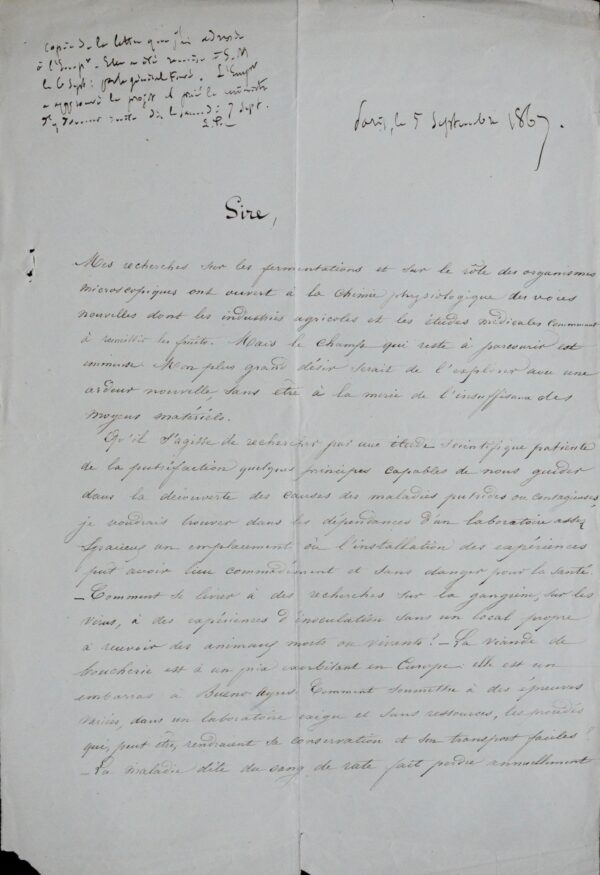 copie de la lettre que j'ai adressée
à l'Empr. Elle a été remise à S.M
le 6 Sept: par le général Favé. L'Empr
a approuvé le projet et prié le ministre
d'y donner suite dès le samedi 7 Sept.
L.P.
Paris, le 5 Septembre 1867.
Sire,
Mes recherches sur les fermentations et sur le rôle des organismes
microscopiques ont ouvert à la Chimie physiologique des voies
nouvelles dont les industries agricoles et les études médicales commencent
à recueillir les fruits. Mais le champ qui reste à parcourir est
immense. Mon plus grand désir serait de l'explorer avec une
ardeur nouvelle, sans être à la merci de l'insuffisance des
moyens matériels.
Qu'il s'agisse de rechercher par une étude scientifique patiente
de la putréfaction quelques principes capables de nous guider
dans la découverte des causes des maladies putrides ou contagieuses,
je voudrais trouver dans les dépendances d'un laboratoire assez
spacieux un emplacement où l'installation des expériences
put avoir lieu commodément et sans danger pour la santé.
— Comment se livrer à des recherches sur la gangrène, sur les
virus, à des expériences d'inoculation sans un local propre
à recevoir des animaux morts ou vivants? — La viande de
boucherie est à un prix exorbitant en Europe: elle est un
embarras à Buenos Ayres. Comment soumettre à des épreuves
variées, dans un laboratoire exigu et sans ressources, les procédés
qui, peut être, rendraient sa conservation et son transport faciles?
— La maladie dite du sang de rate fait perdre annuellement